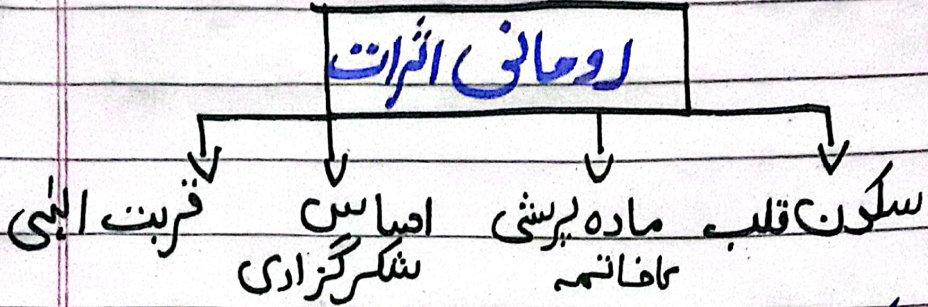 روحانی اثرات
سکون قلب
مادہ پرستی
کا خاتمہ
احساس
شکرگزاری
قربت الہٰی